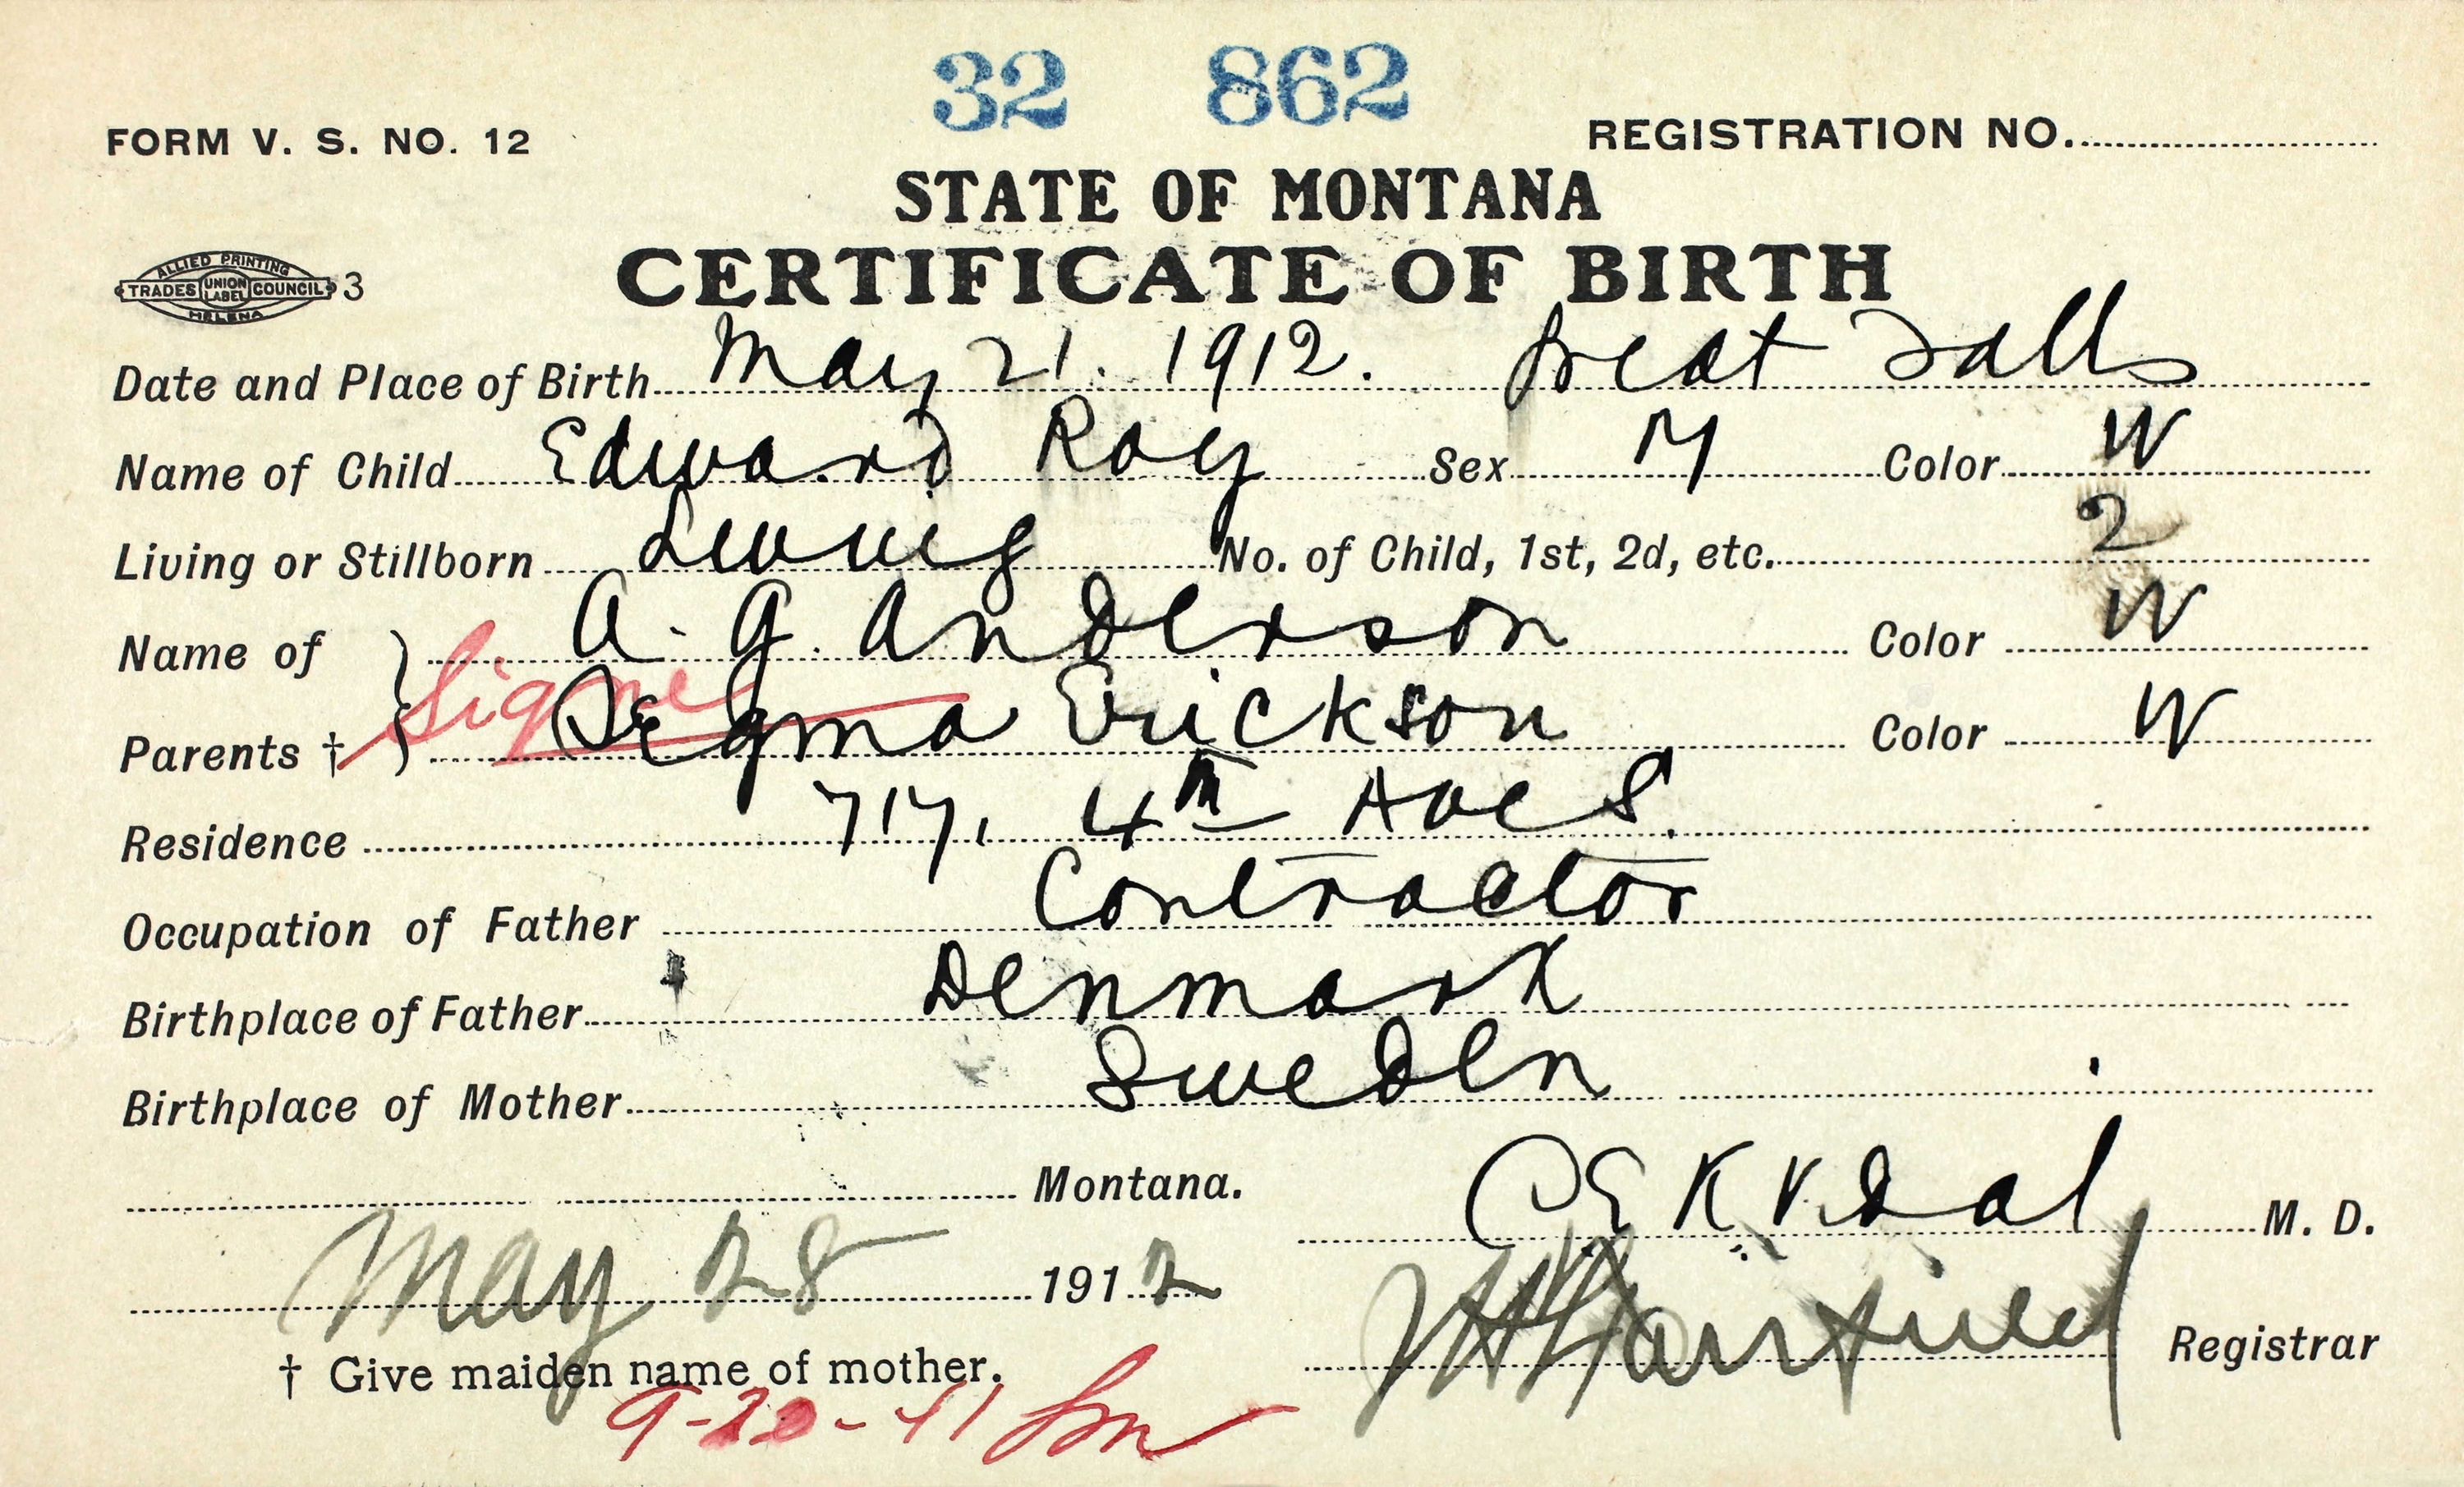 32 862
FORM V. S. NO. 12 REGISTRATION NO.
STATE OF MONTANA
ALLIED PRINTING
TRADES UNION LABEL COUNCIL 3
HELENA
CERTIFICATE OF BIRTH
Date and Place of Birth May 21. 1912. Great Falls
Name of Child Edward Roy Sex M Color W
Living or Stillborn Living No. of Child, 1st, 2d, etc. 2
Name of A. G. Anderson Color W
Signe
Parents † Segma Erickson Color W
Residence 717, 4th Ave S.
Occupation of Father Contractor
Birthplace of Father Denmark
Birthplace of Mother Sweden
Montana. C E K V Dal M. D.
May 28 1912 Fairfield Registrar
† Give maiden name of mother.
9-20-41